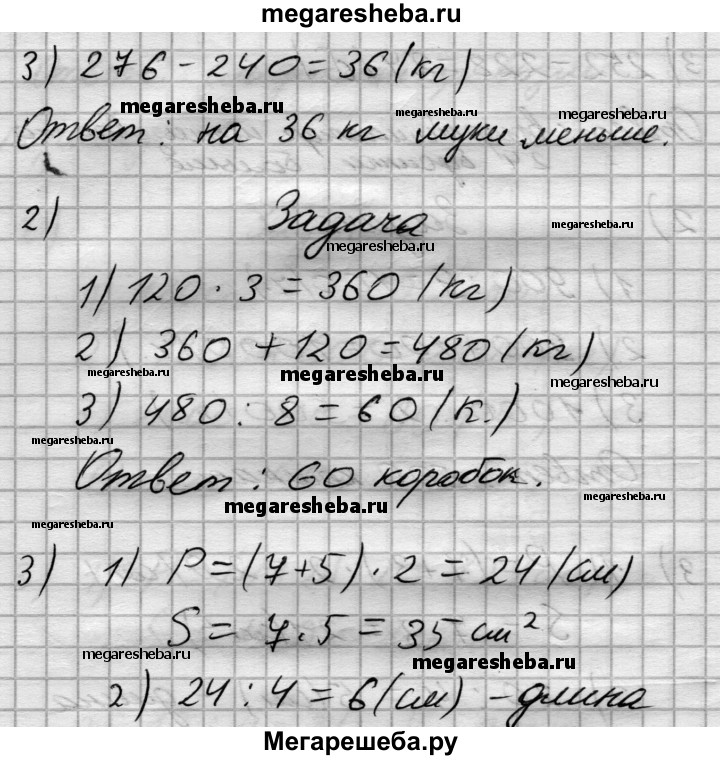 megaresheba.ru
3) 276 - 240 = 36 (кг)
megaresheba.ru
megaresheba.ru
megaresheba.ru
Ответ: на 36 кг муки меньше.
2) Задача
megaresheba.ru
megaresheba.ru
1) 120 · 3 = 360 (кг)
2) 360 + 120 = 480 (кг)
megaresheba.ru
megaresheba.ru
megaresheba.ru
3) 480 : 8 = 60 (к.)
megaresheba.ru
Ответ: 60 коробок.
megaresheba.ru
megaresheba.ru
megaresheba.ru
3) 1) P = (7+5) · 2 = 24 (см)
S = 7 · 5 = 35 см²
megaresheba.ru
megaresheba.ru
2) 24 : 4 = 6 (см) - длина
Мегарешеба.ру